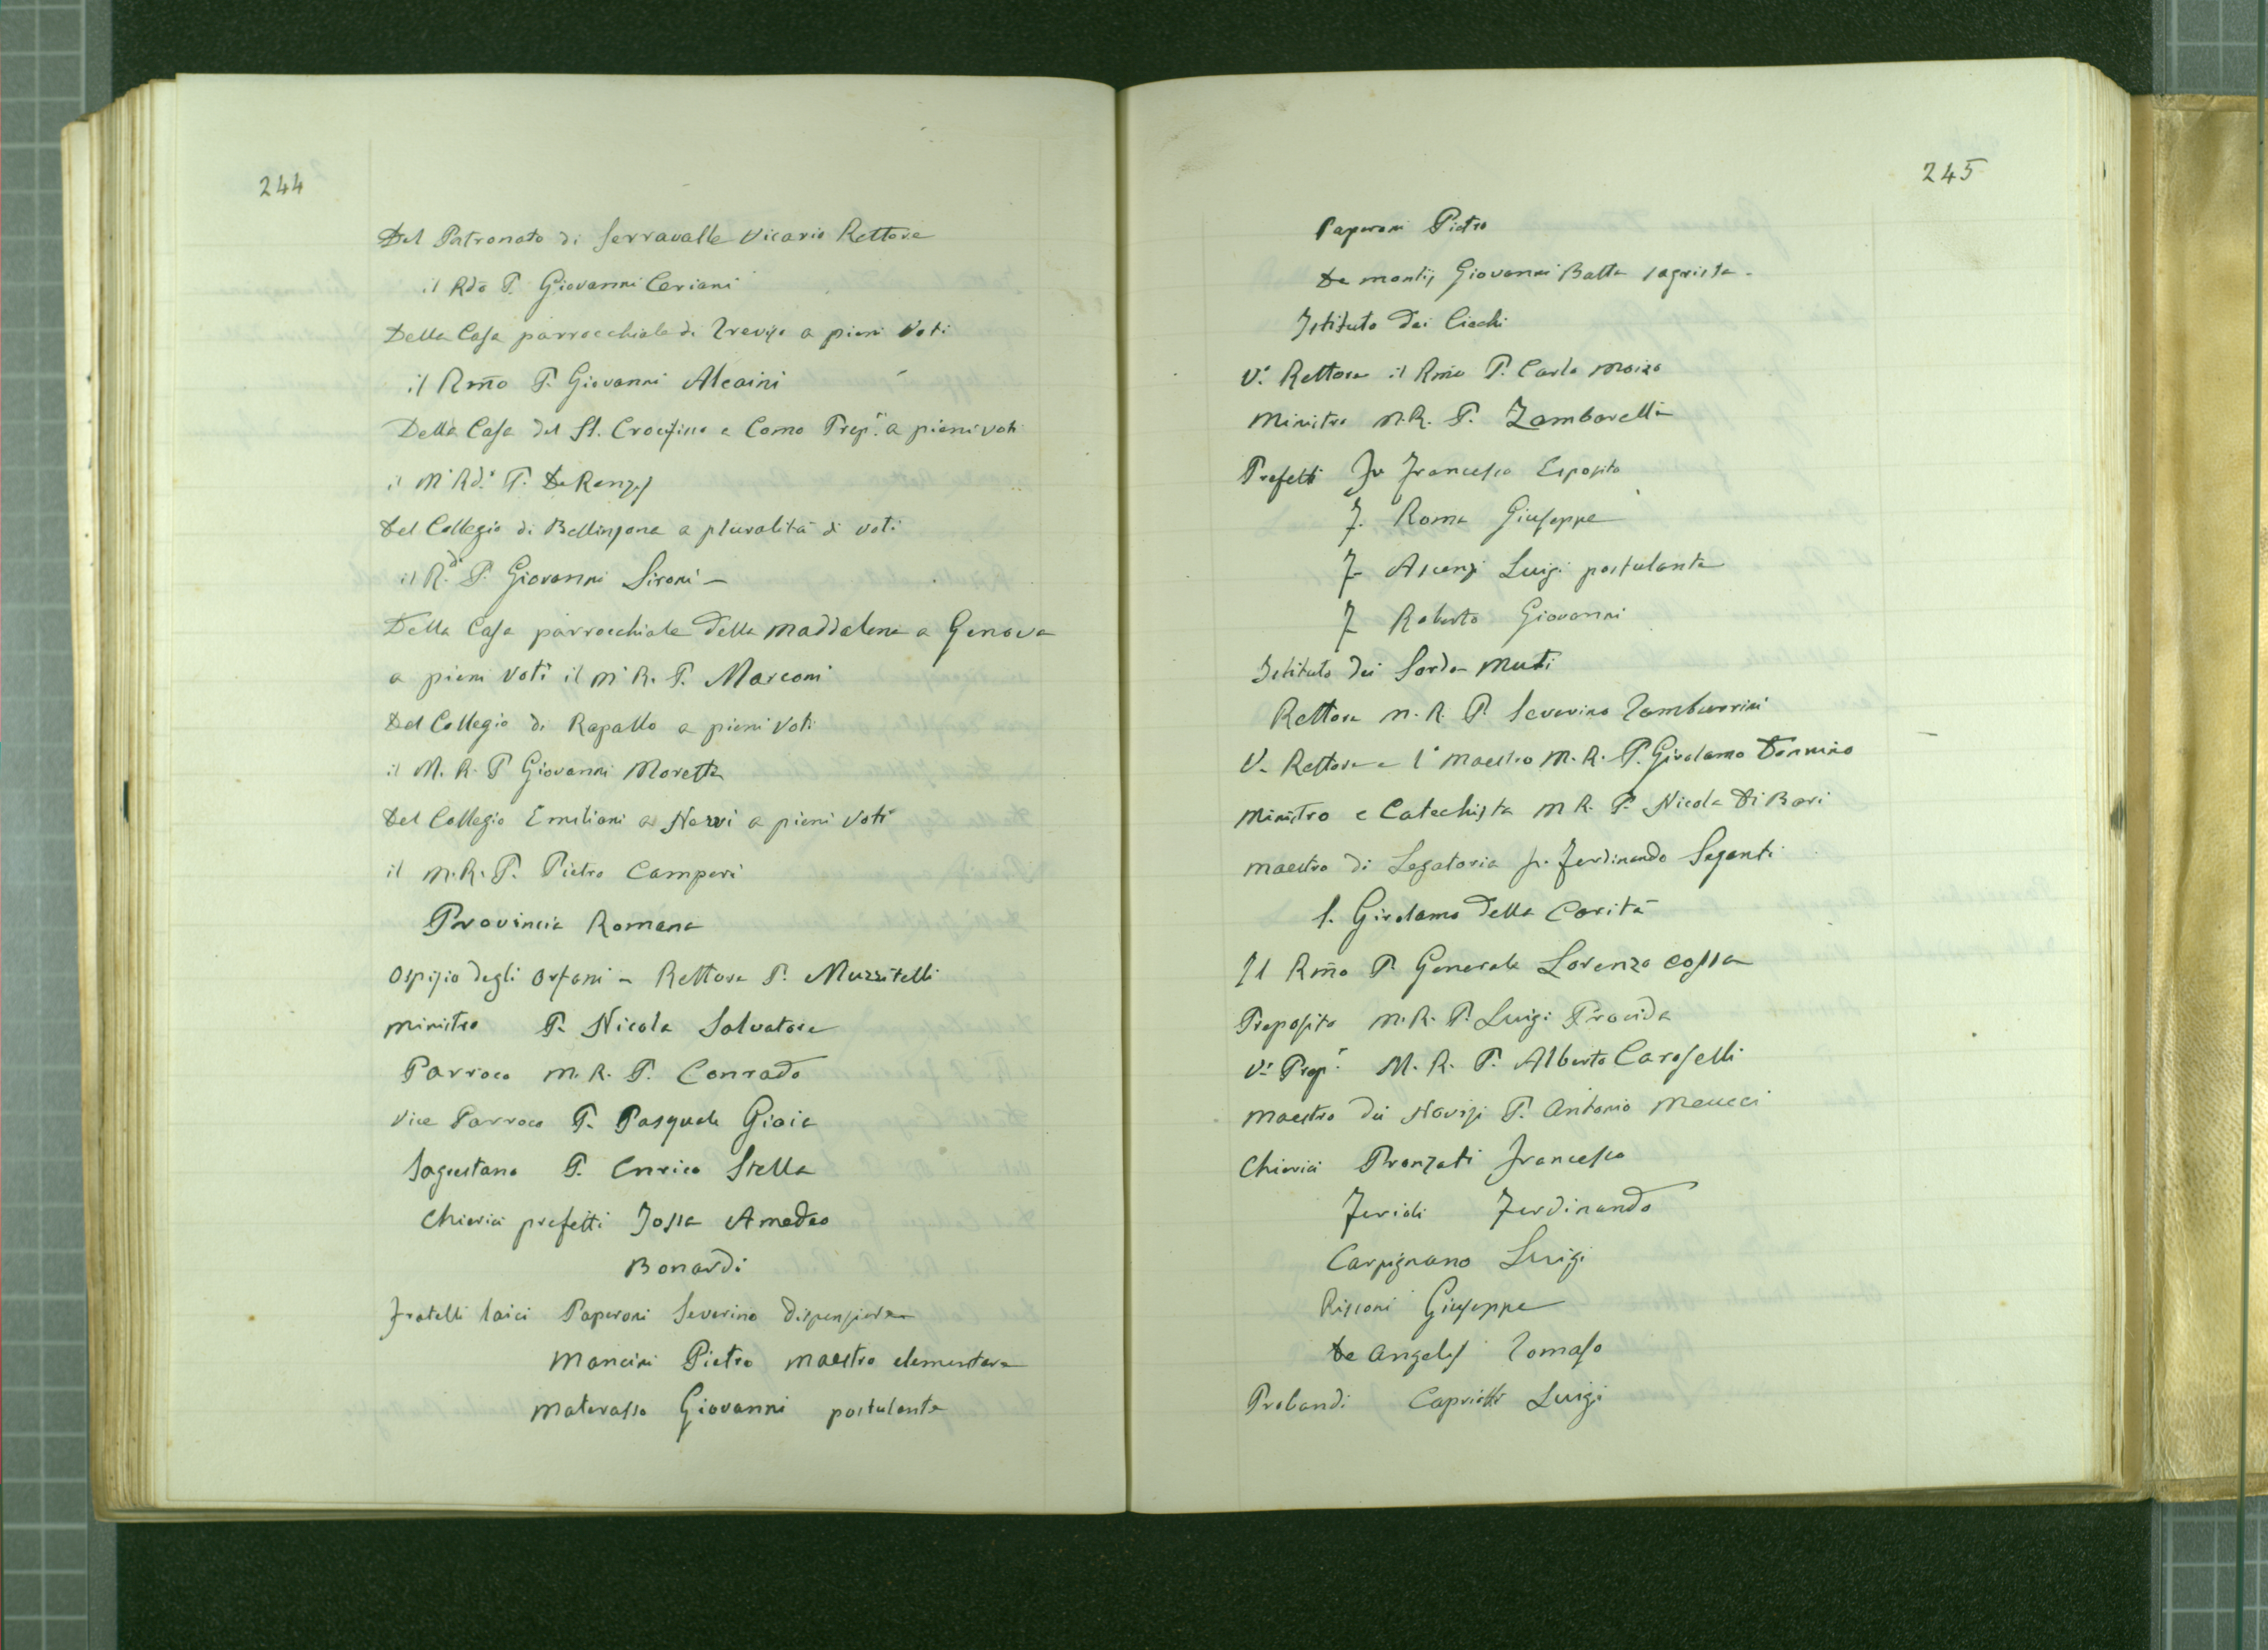 244
Del Patronato di Serravalle Vicario Rettore
il Rdo P. Giovanni Ceriani
Della Casa parrocchiale di Treviso a pieni voti
il Rmo P. Giovanni Alcaini
Della Casa del SS. Crocifisso a Como Prep.º a pieni voti
il M Rdº P. De Renzis
Del Collegio di Bellinzona a pluralità di voti
il R.do P. Giovanni Sironi -
Della Casa parrocchiale della Maddalena a Genova
a pieni voti il M R. P. Marconi
Del Collegio di Rapallo a pieni voti
il M. R. P Giovanni Moretta
Del Collegio Emiliani a Nervi a pieni voti
il M. R. P. Pietro Camperi
Provincia Romana
Ospizio degli Orfani - Rettore P. Muzzitelli
Ministro P. Nicola Salvatore
Parroco M. R. P. Conrado
Vice Parroco P. Pasquale Gioia
Sagrestano P. Enrico Stella
Chierici prefetti Jossa Amedeo
Bonardi
Fratelli laici Paperoni Severino dispensiere
Mancini Pietro maestro elementare
Materasso Giovanni postulante
245
Paperoni Pietro
De Montis Giovanni Batta sagrista -
Istituto dei Ciechi
V. Rettore il Rmo P. Carlo Moizo
Ministro M. R. P. Zambarelli
Prefetti Fr Francesco Esposito
F. Roma Giuseppe
F- Ascenzi Luigi postulante
F Roberto Giovanni
Istituto dei Sordo-Muti
Rettore M. R. P. Severino Tamburrini
V. Rettore e 1º maestro M. R. P. Girolamo Dennino
Ministro e Catechista M R. P. Nicola Di Bari
Maestro di Legatoria fr. Ferdinando Seganti
S. Girolamo della Carità
Il Rmo P. Generale Lorenzo Cossa
Preposito M. R. P. Luigi Procida
V. Prep. M. R. P. Alberto Caroselli
Maestro dei Novizi P. Antonio Meucci
Chierici Pronzati Francesco
Ferioli Ferdinando
Carpignano Luigi
Risconi Giuseppe
De Angelis Tomaso
Probandi Capriotti Luigi